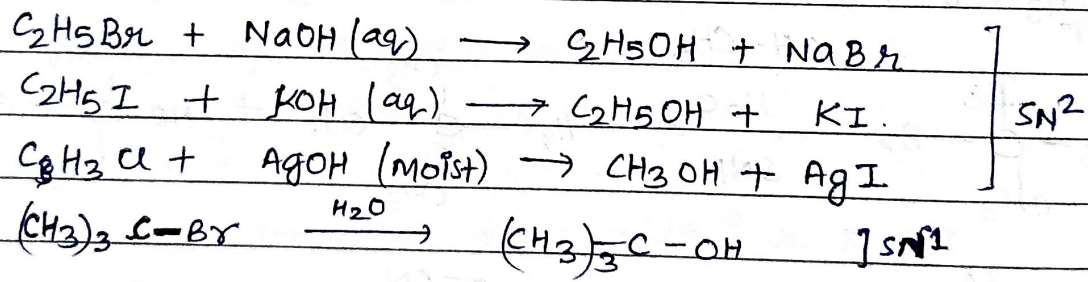 C2H5Br + NaOH (aq) ⟶ C2H5OH + NaBr
C2H5I + KOH (aq) ⟶ C2H5OH + KI. ] SN²
CH3Cl + AgOH (moist) → CH3OH + AgI
(CH3)3 C-Br —H2O→ (CH3)3-C-OH ] SN1